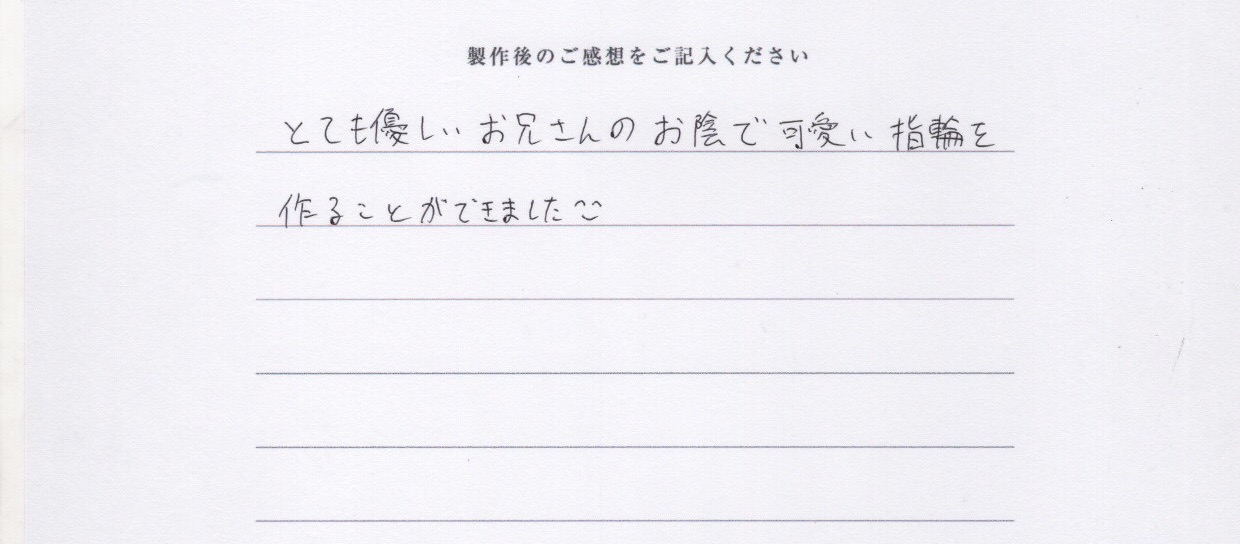 製作後のご感想をご記入ください
とても優しいお兄さんのお陰で可愛い指輪を
作ることができました